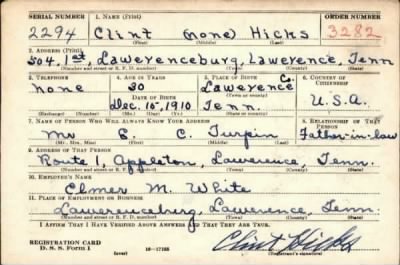 SERIAL NUMBER 1. NAME (Print) ORDER NUMBER
2294 Clint (none) Hicks 3282
(First) (Middle) (Last)
2. ADDRESS (Print)
504, 1st, Lawerenceburg, Lawerence, Tenn
(Number and street or R. F. D. number) (Town) (County) (State)
3. TELEPHONE 4. AGE IN YEARS 5. PLACE OF BIRTH 6. COUNTRY OF CITIZENSHIP
none 30 Lawerence Co. U.S.A.
DATE OF BIRTH (Town or county)
Dec. 15, 1910 Tenn.
(Exchange) (Number) (Mo.) (Day) (Yr.) (State or country)
7. NAME OF PERSON WHO WILL ALWAYS KNOW YOUR ADDRESS 8. RELATIONSHIP OF THAT PERSON
Mr E. C. Turpin Father-in-law
(Mr., Mrs., Miss) (First) (Middle) (Last)
9. ADDRESS OF THAT PERSON
Route 1, Appleton, Lawerence, Tenn.
(Number and street or R. F. D. number) (Town) (County) (State)
10. EMPLOYER'S NAME
Elmer M. White
11. PLACE OF EMPLOYMENT OR BUSINESS
Lawerenceburg, Lawerence, Tenn.
(Number and street or R. F. D. number) (Town) (County) (State)
I AFFIRM THAT I HAVE VERIFIED ABOVE ANSWERS AND THAT THEY ARE TRUE.
REGISTRATION CARD Clint Hicks
D. S. S. Form 1 (over) 16—17105 (Registrant's signature)